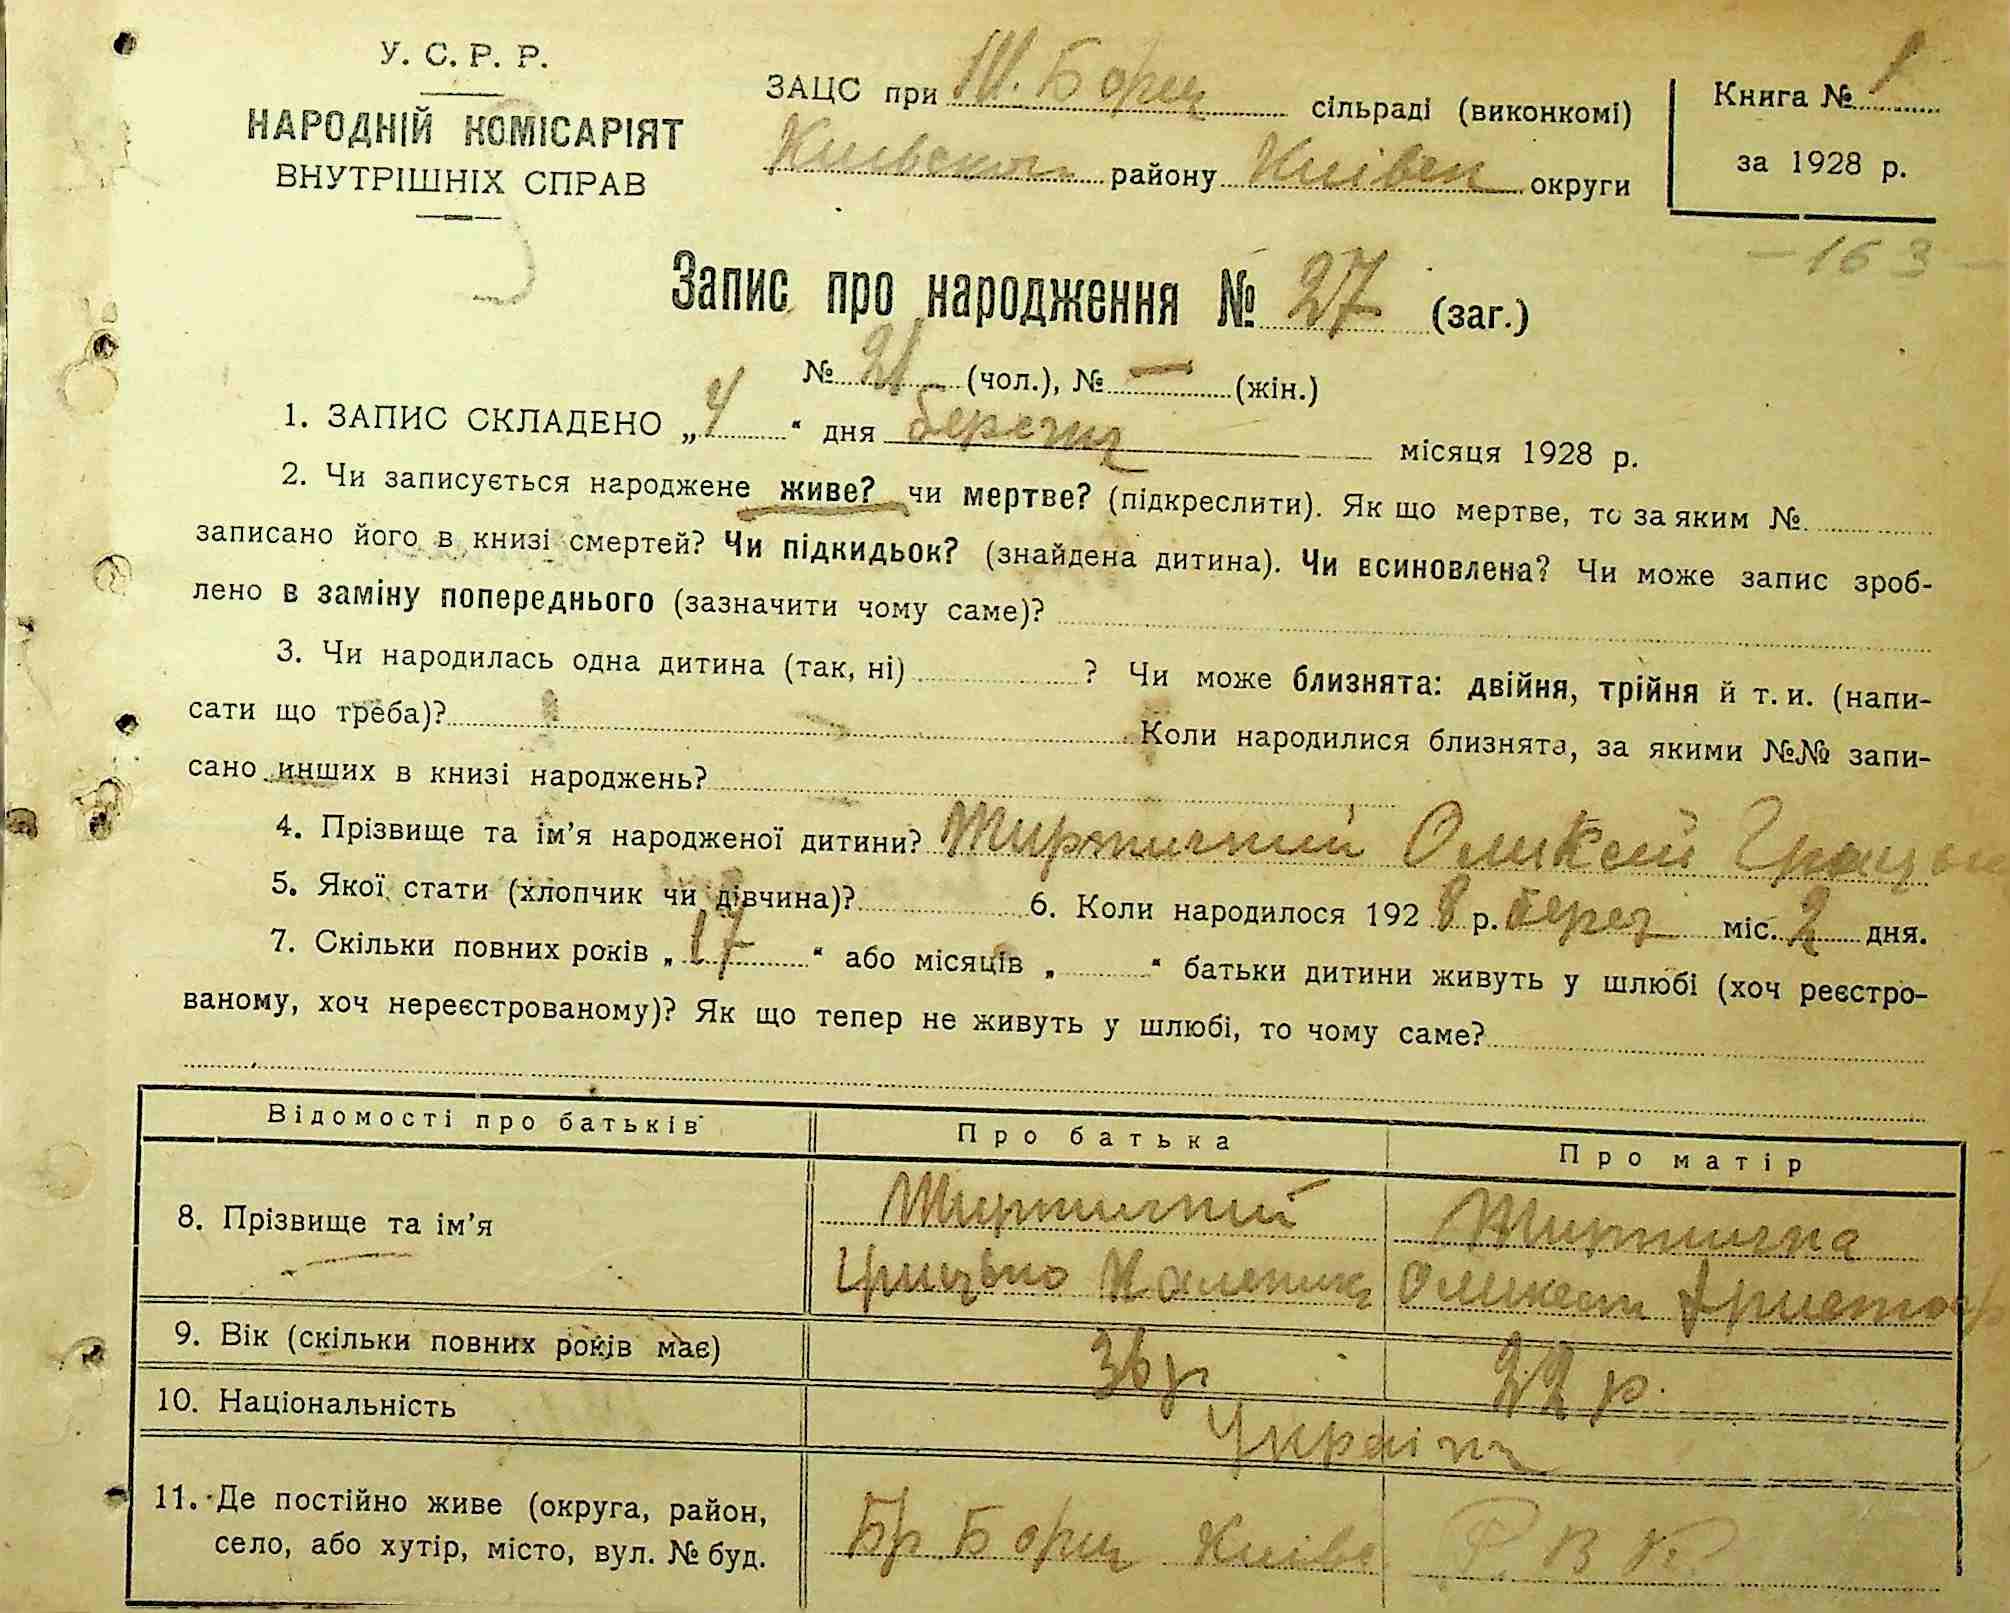 У. С. Р. Р.
НАРОДНІЙ КОМІСАРІЯТ
ВНУТРІШНІХ СПРАВ
ЗАЦС при Борщ сільраді (виконкомі)
району Київськ округи
Книга № 1
за 1928 р.
- 163 -
Запис про народження № 27 (заг.)
№ 21 (чол.), № — (жін.)
1. ЗАПИС СКЛАДЕНО „4“ дня березня місяця 1928 р.
2. Чи записується народжене живе? чи мертве? (підкреслити). Як що мертве, то за яким №
записано його в книзі смертей? Чи підкидьок? (знайдена дитина). Чи всиновлена? Чи може запис зроб-
лено в заміну попереднього (зазначити чому саме)?
3. Чи народилась одна дитина (так, ні) ? Чи може близнята: двійня, трійня й т. и. (напи-
сати що треба)? Коли народилися близнята, за якими №№ запи-
сано инших в книзі народжень?
4. Прізвище та ім’я народженої дитини? Олексій
5. Якої стати (хлопчик чи дівчина)? 6. Коли народилося 1928 р. берез міс. 2 дня.
7. Скільки повних років „17“ або місяців „ “ батьки дитини живуть у шлюбі (хоч реєстро-
ваному, хоч нереєстрованому)? Як що тепер не живуть у шлюбі, то чому саме?
Відомості про батьків Про батька Про матір
8. Прізвище та ім’я
9. Вік (скільки повних років має) 36 р 22 р.
10. Національність Україн
11. Де постійно живе (округа, район,
село, або хутір, місто, вул. № буд. Бр. Борщ Київс Р. В. К.